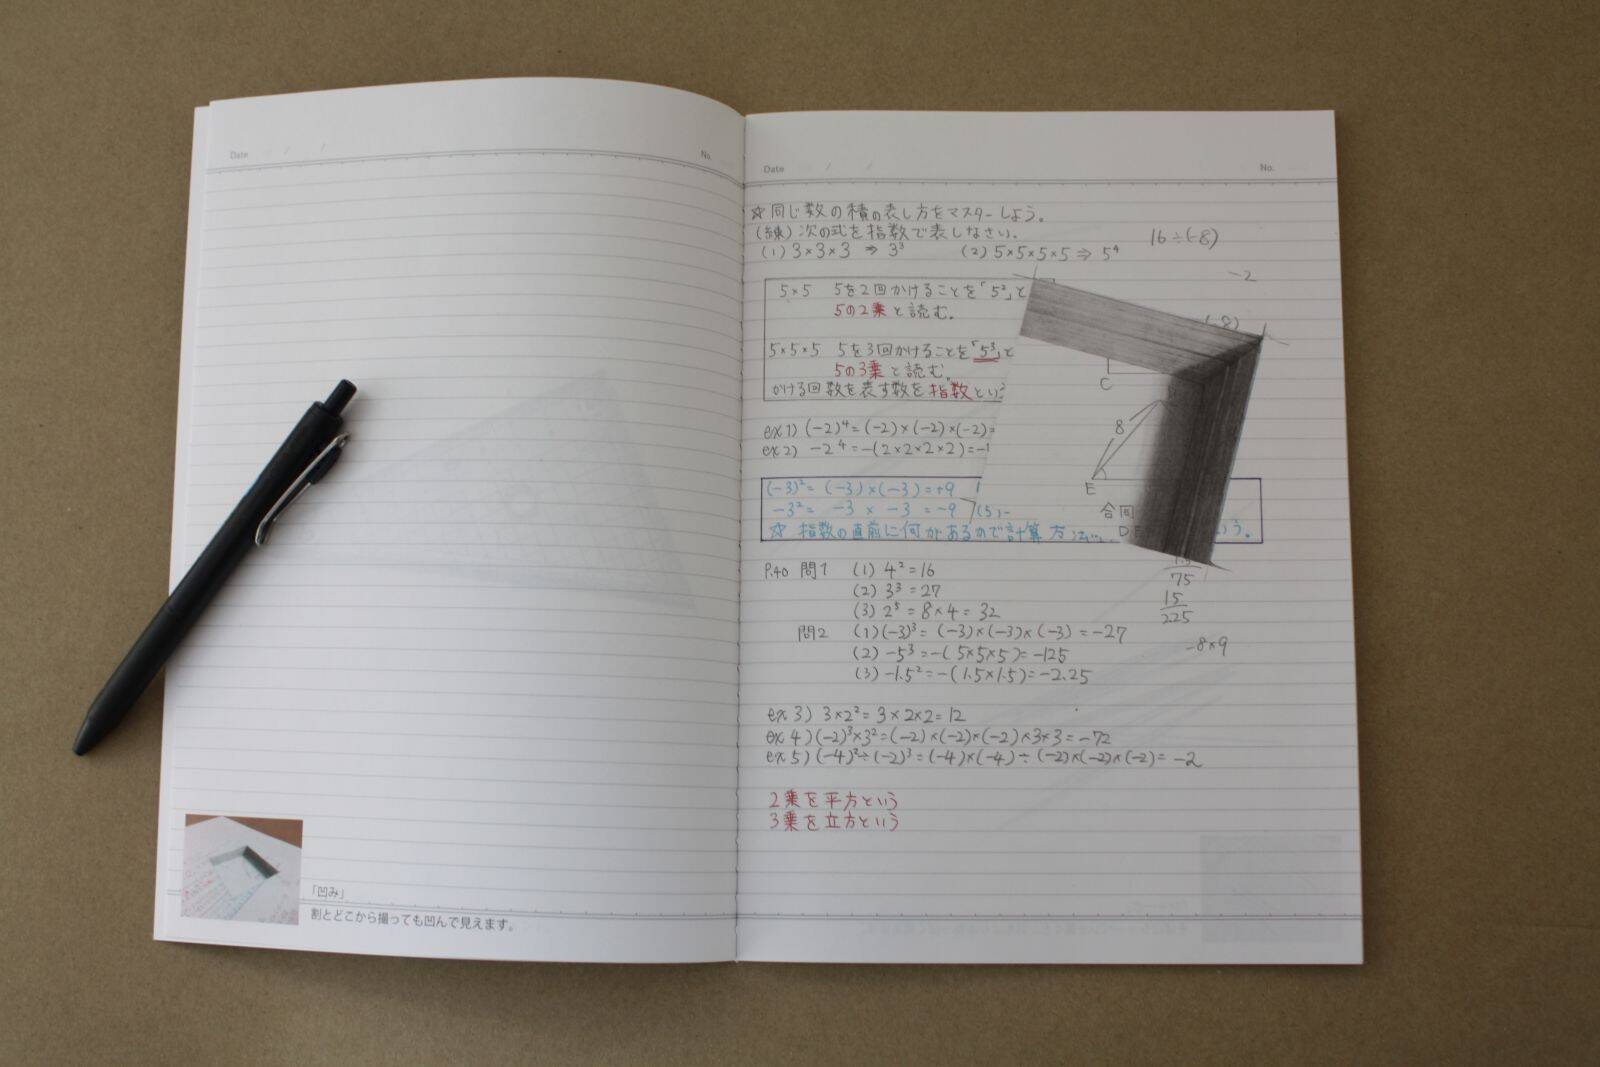 Date / /
No.
「凹み」
割とどこから撮っても凹んで見えます。
Date / /
No.
☆同じ数の積の表し方をマスターしよう。
(練)次の式を指数で表しなさい。
(1) 3×3×3 ⇒ 3³ (2) 5×5×5×5 ⇒ 5⁴
16÷(-8)
-2
5×5 5を2回かけることを「5²」と
5の2乗と読む。
(-8)
5×5×5 5を3回かけることを「5³」と
5の3乗と読む。
C
かける回数を表す数を指数とい
8
ex1) (-2)⁴=(-2)×(-2)×(-2)=
ex2) -2⁴=-(2×2×2×2)=-1
E
(-3)²= (-3)×(-3)=+9
-3²= -3 × -3 =-9
合同
☆ 指数の直前に何があるので計算方
D
う。
P.40 問1 (1) 4²=16
(2) 3³=27
(3) 2⁵=8×4=32
75
15
225
問2 (1)(-3)³=(-3)×(-3)×(-3)=-27
(2) -5³=-(5×5×5)=-125
(3) -1.5²=-(1.5×1.5)=-2.25
-8×9
ex3) 3×2²=3×2×2=12
ex4)(-2)³×3²=(-2)×(-2)×(-2)×3×3=-72
ex5)(-4)²÷(-2)³=(-4)×(-4)÷(-2)×(-2)×(-2)=-2
2乗を平方という
3乗を立方という